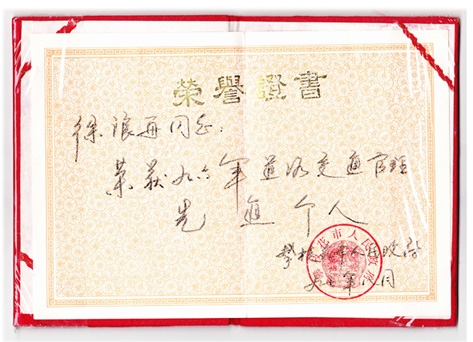 榮譽證書
徐浪舟同志：
荣获九六年道路交通管理
先進个人
攀枝花市人民政府
年八月